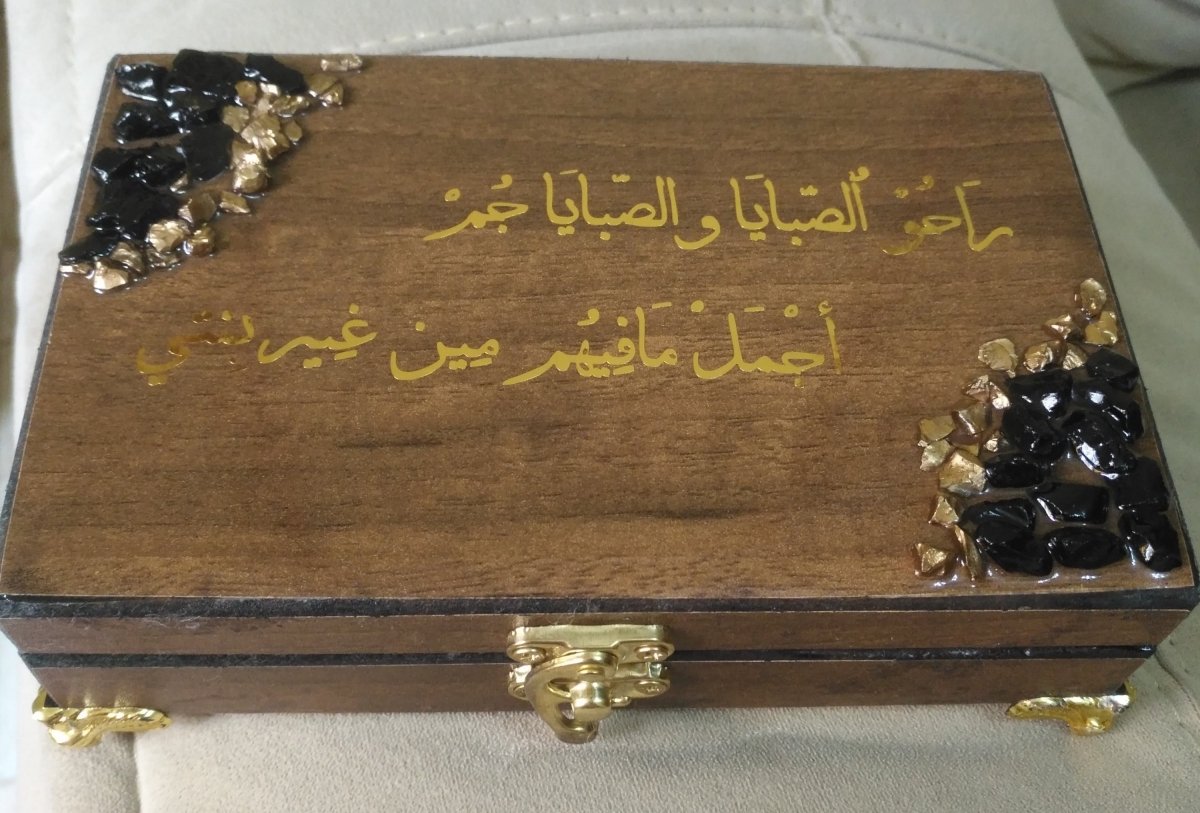 رَاحُوْ ٱلصّبايَا و الصّبايَا جُمْر
أجْمَلْ مَافِيهُم مِين غِير بنتي